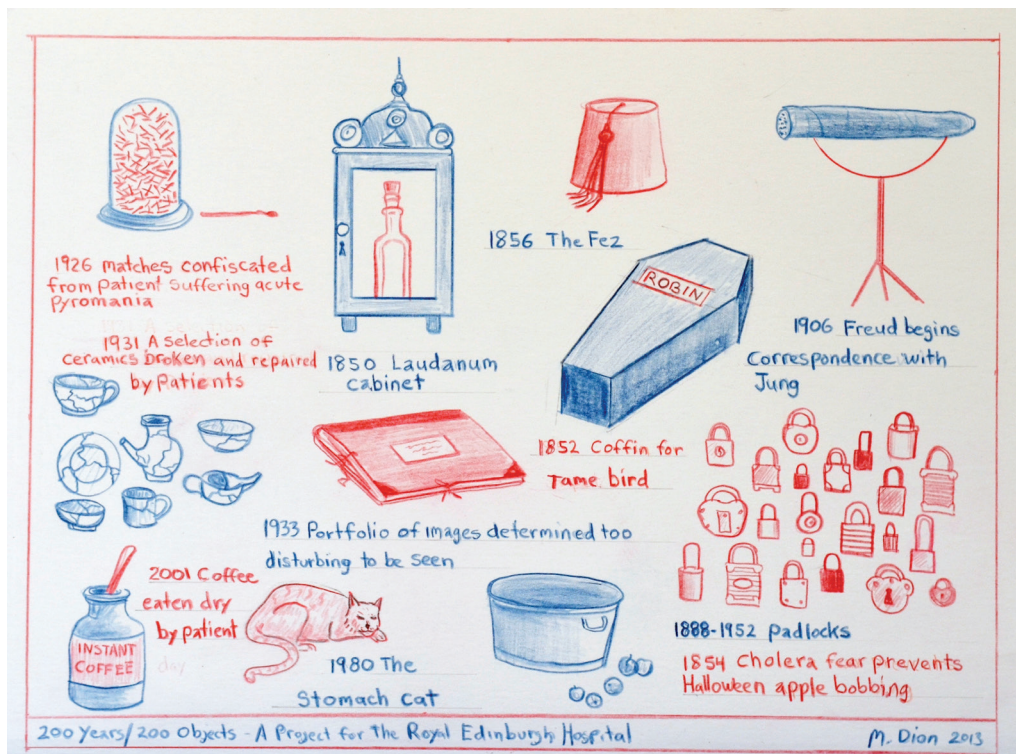 1926 matches confiscated
from patient suffering acute
Pyromania
1931 A selection of
ceramics broken and repaired
by Patients
1850 Laudanum
cabinet
1856 The Fez
ROBIN
1852 Coffin for
Tame bird
1906 Freud begins
Correspondence with
Jung
1933 Portfolio of images determined too
disturbing to be seen
INSTANT
COFFEE
2001 Coffee
eaten dry
by patient
day
1980 The
Stomach Cat
1888-1952 Padlocks
1854 Cholera fear prevents
Halloween apple bobbing
200 Years/200 Objects - A Project for The Royal Edinburgh Hospital
M. Dion 2013